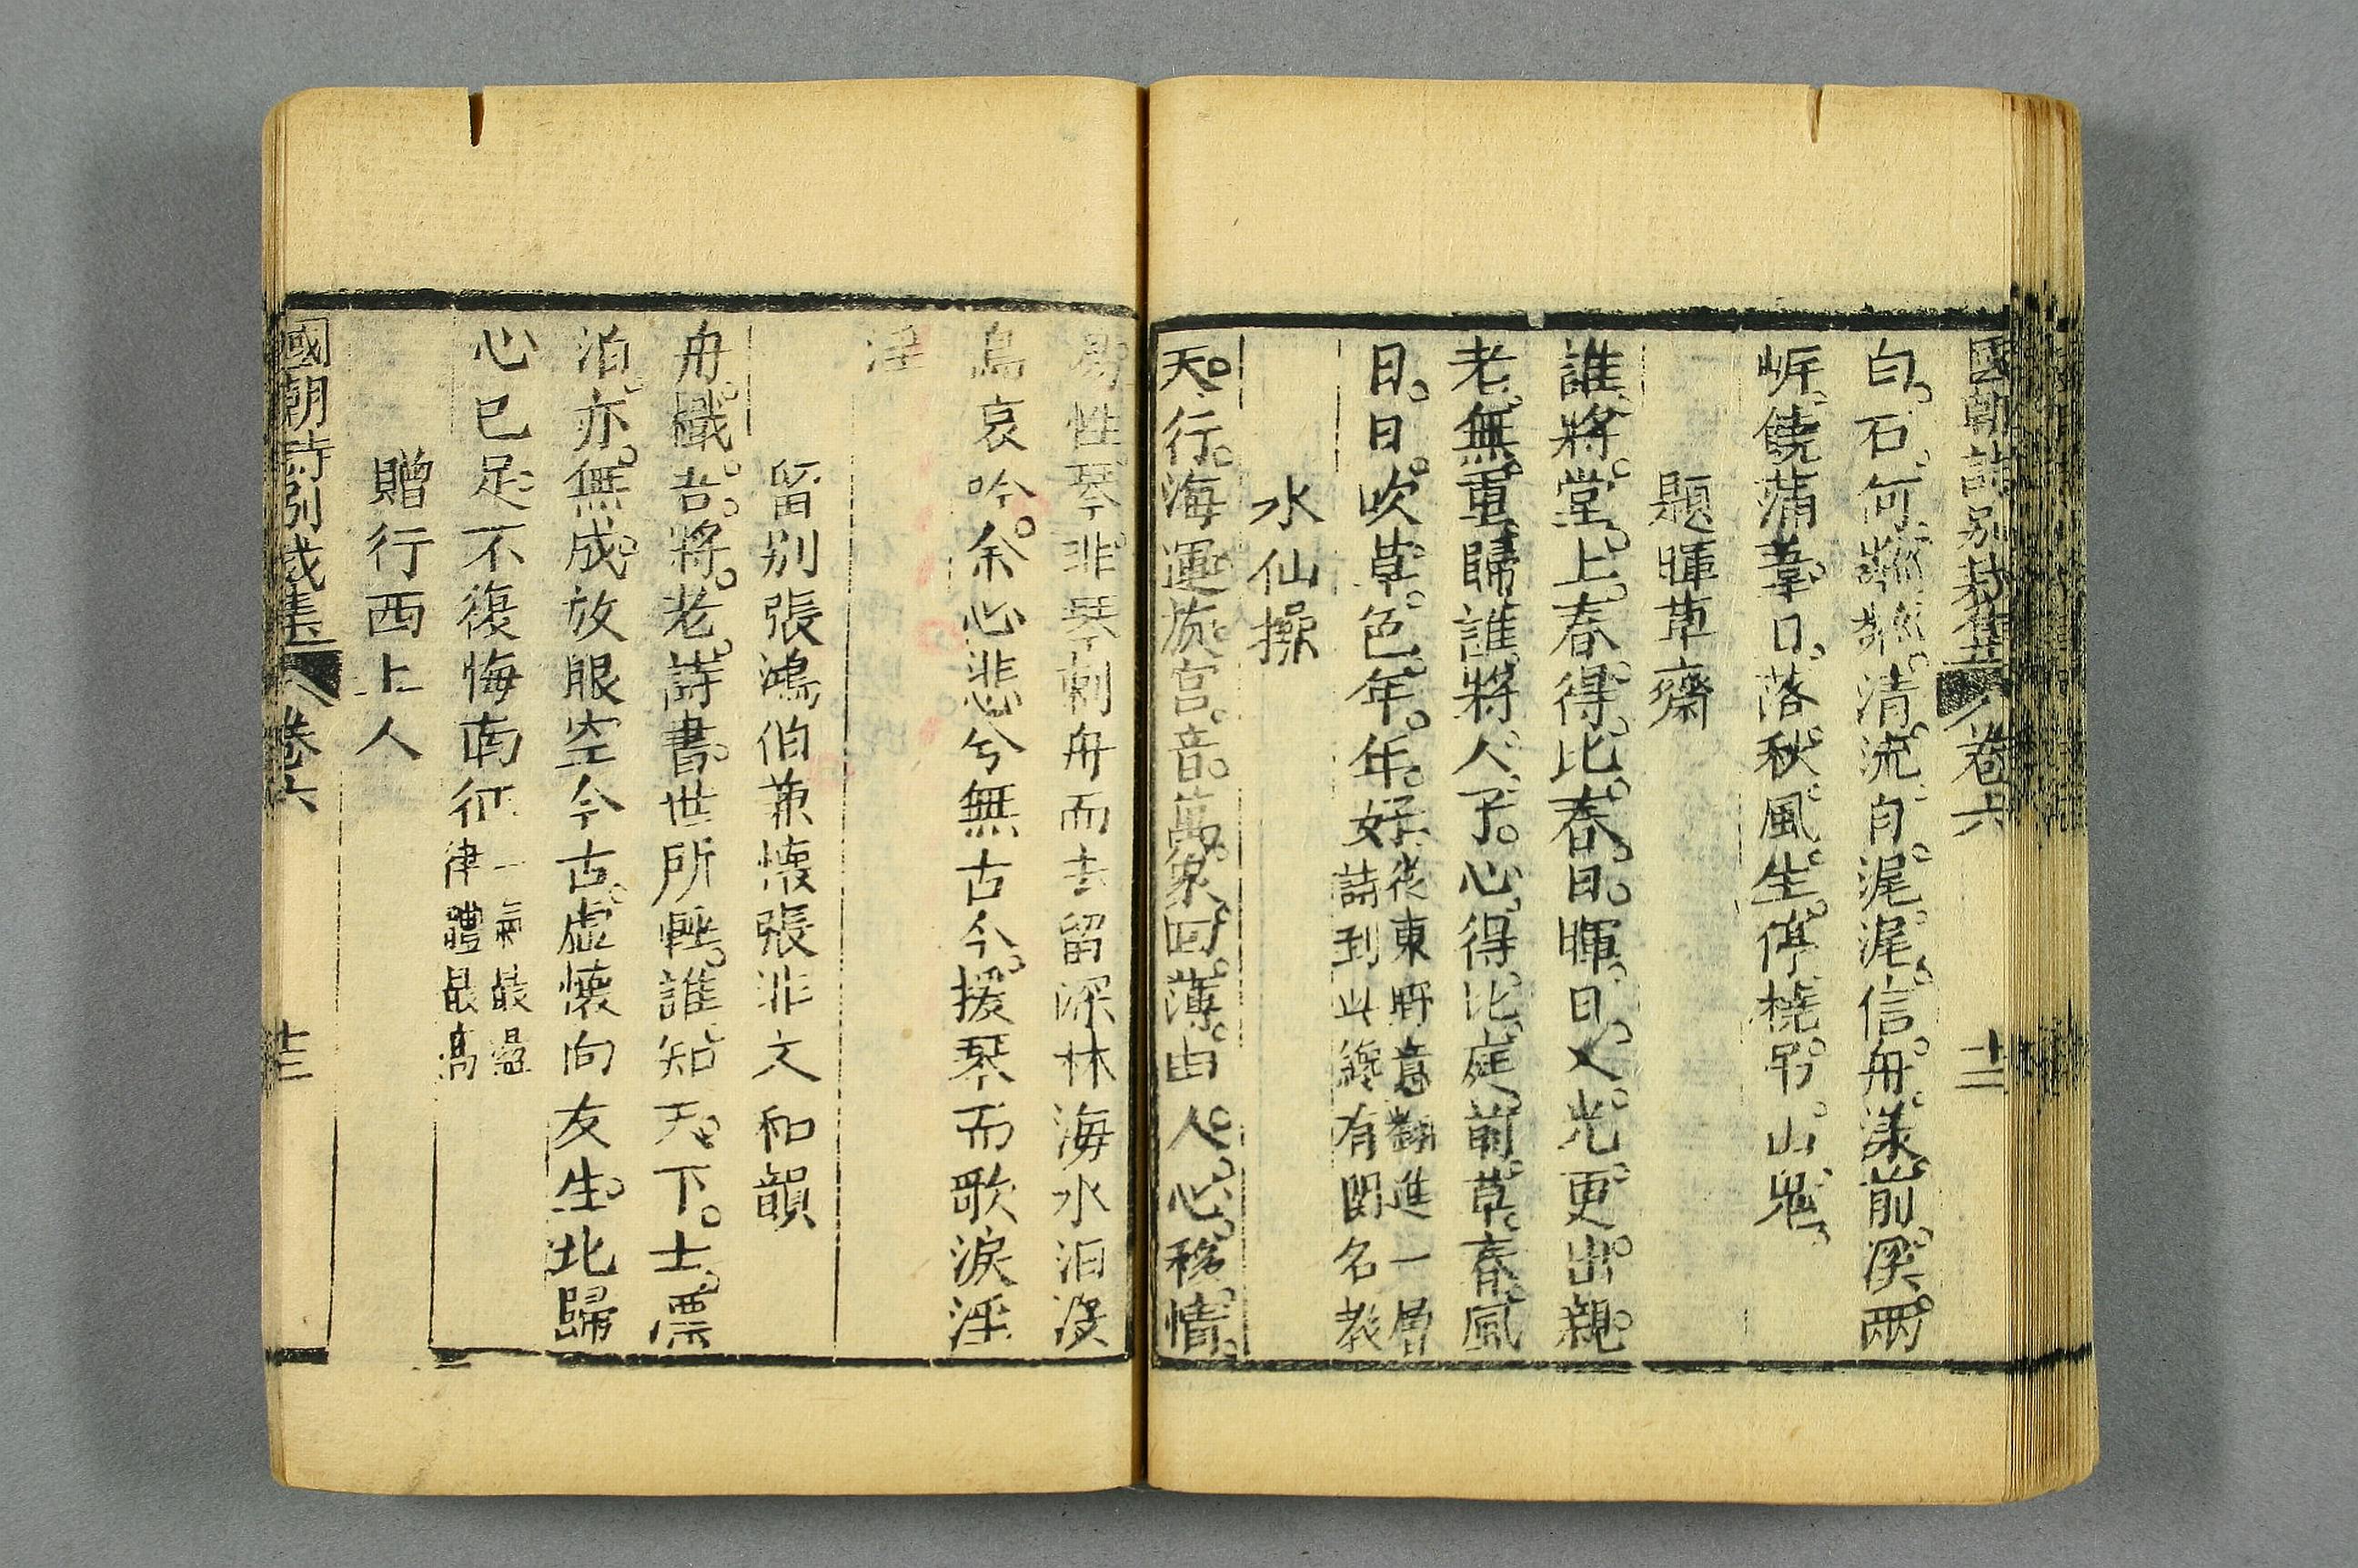 國朝詩別裁集 卷六 十二
白石何粼粼清流自浘浘信舟漾前溪兩
㟁饒蒲葦日落秋風生停橈弔山鬼
題暉草齋
誰將堂上春得比春日暉日入光更出親
老無重歸誰將人子心得比庭前草春風
日日吹草色年年好從東野意翻進一層
詩到此纔有關名教
水仙操
天行海運旋宮音萬象回薄由人心移情
易性琴非琴刺舟而去留深林海水汨沒
鳥哀吟余心悲兮無古今援琴而歌淚淫
淫
留别張鴻伯兼懷張非文和韻
舟檝吾將老詩書世所輕誰知天下士漂
泊亦無成放眼空今古虛懷向友生北歸
心已足不復悔南征一氣最過
律體最高
贈行西上人
國朝詩別裁集 卷六 十三